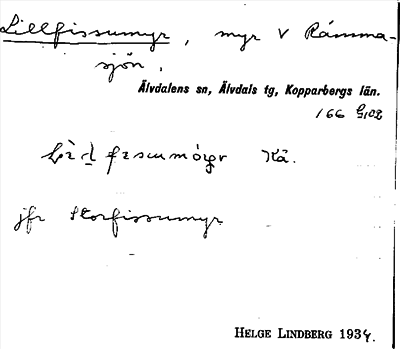 Lillfissumyr, myr V Råmma-
sjön.
Älvdalens sn, Älvdals tg, Kopparbergs län.
166
Kå.
jfr Storfissumyr
HELGE LINDBERG 1934.